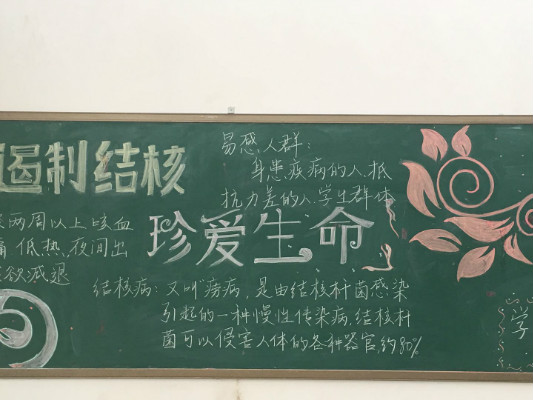 遏制结核
易感人群:
身患疾病的人、抵
抗力差的人、学生群体
两周以上咳血
痛、低热、夜间出
欲减退
珍爱生命
结核病:又叫"痨病",是由结核杆菌感染
引起的一种慢性传染病,结核杆
菌可以侵害人体的各种器官,约80%
学